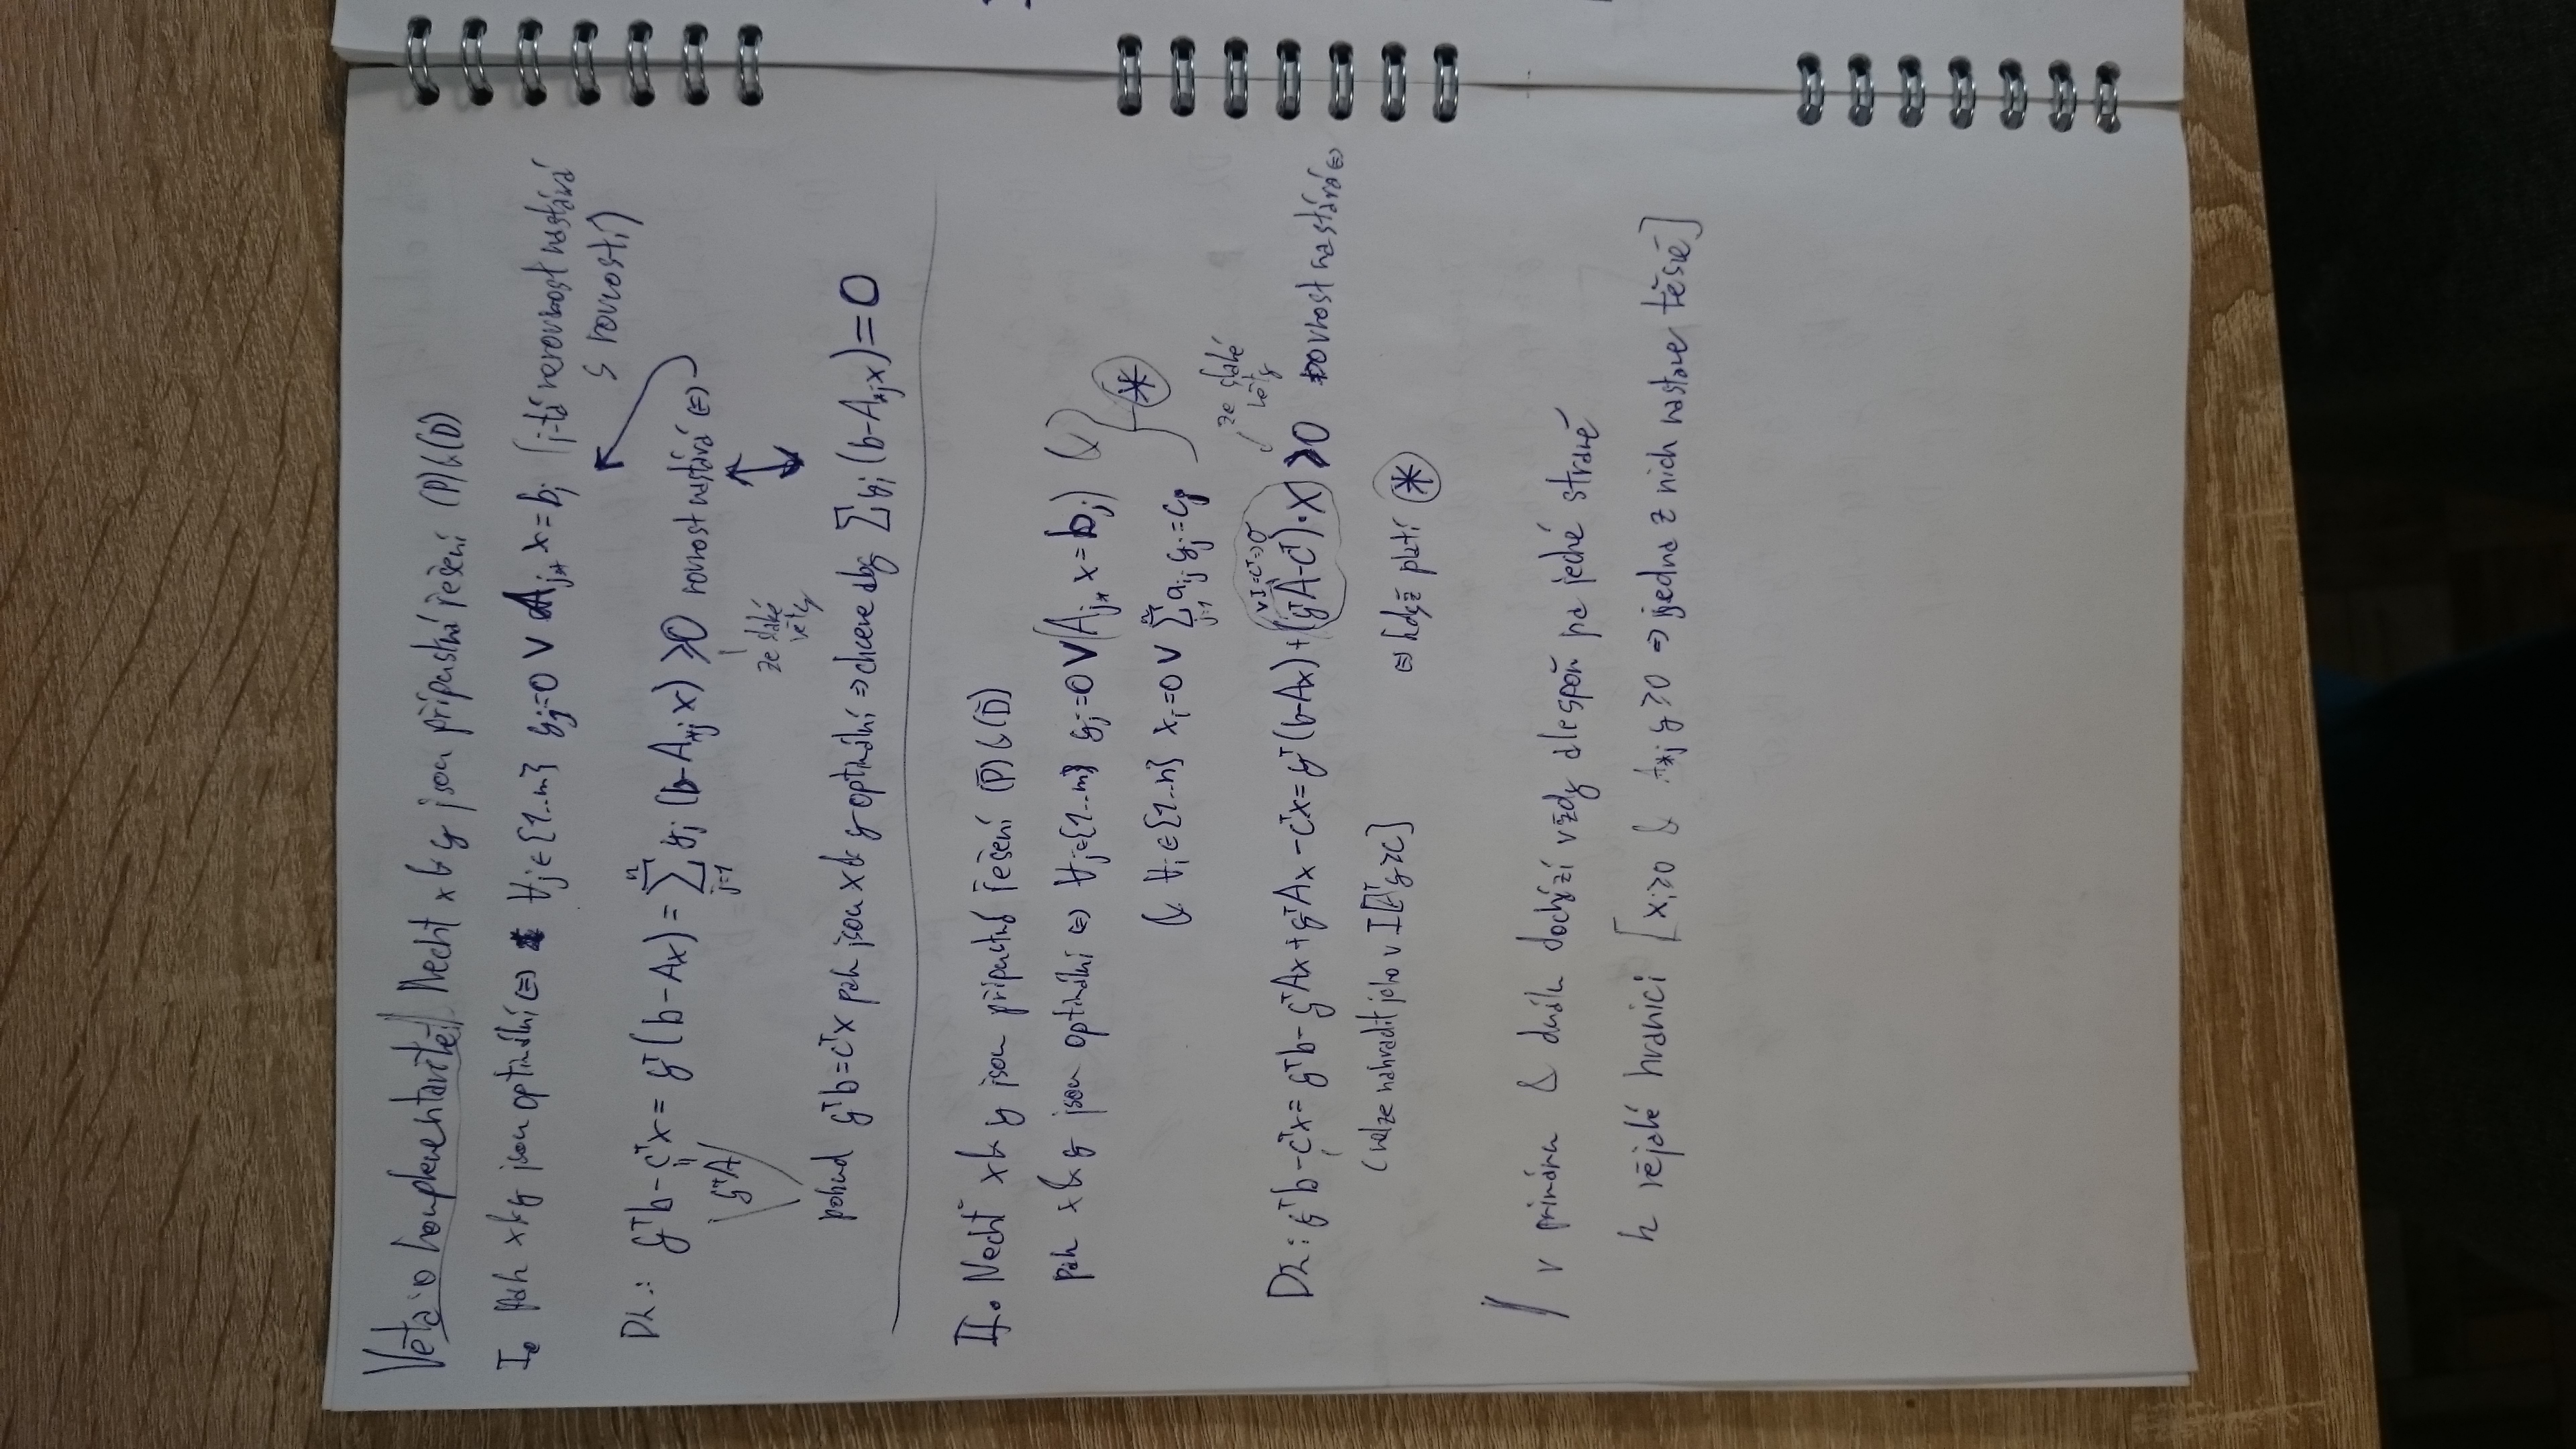 Věta: o komplementaritě// Nechť x & y jsou přípustná řešení (P)&(D)
I. Pak x & y jsou optimální ⇔ ∀j∈{1..m} yⱼ=0 ∨ Aⱼ* x = bⱼ (j-tá nerovnost nastává
s rovností)
Dk.: yᵀb-cᵀx = yᵀ(b-Ax) = ∑ⱼ₌₁ᵐ yⱼ (b-A*ⱼx) ≥0 rovnost nastává ⇔
yᵀA
ze slabé
věty
pokud yᵀb=cᵀx pak jsou x & y optimální ⇒ chceme aby ∑yⱼ(b-A*ⱼx)=0
II. Nechť x & y jsou příputná řešení (P̄)&(D̄)
pak x & y jsou optimální ⇔ ∀j∈{1..m} yⱼ=0 ∨ (Aⱼ* x = bⱼ) &
& ∀i∈{1..n} xᵢ=0 ∨ ∑ⱼ₌₁ᵐ aᵢⱼ yⱼ=cⱼ
⊛
ze slabé
věty
v I =cᵀ⇒0
Dk: yᵀb-cᵀx= yᵀb-yᵀAx+yᵀAx-cᵀx= yᵀ(b-Ax)+(yᵀA-cᵀ)·x ≥0 rovnost nastává ⇔
(nelze nahradit jako v I [Aᵀy≥c]
⇔ když platí ⊛
// v primáru & duálu dochází vždy alespoň na jedné straně
k nějaké hranici [xᵢ≥0 & A*ⱼ y≥0 ⇒ jedna z nich nastane těsně]